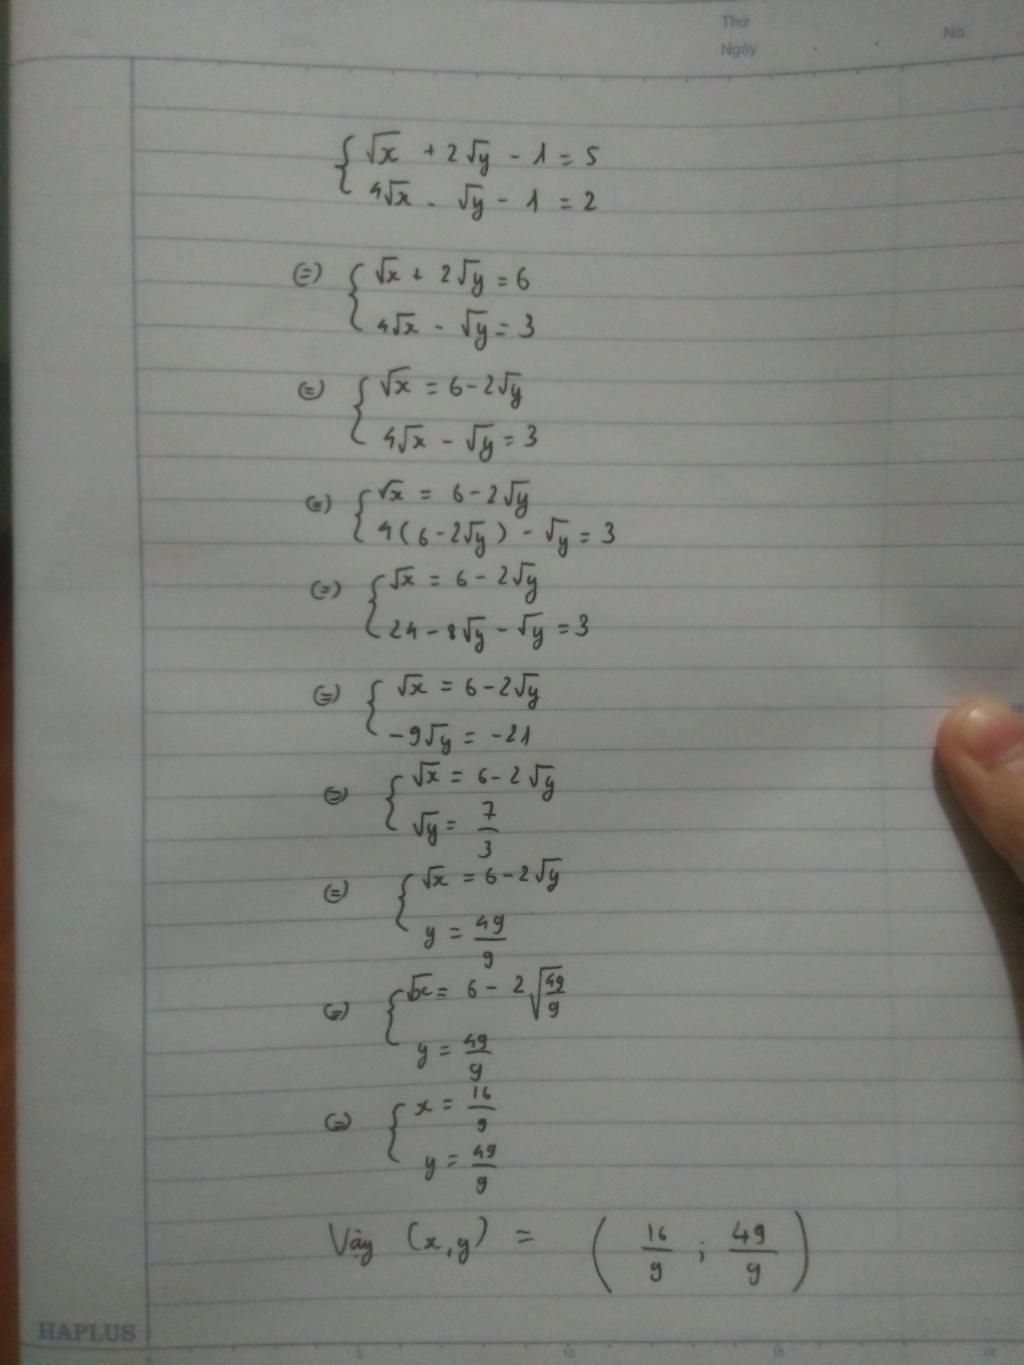 Thứ
Ngày
No.
{ √x + 2√y - 1 = 5
4√x - √y - 1 = 2
(=) { √x + 2√y = 6
4√x - √y = 3
(=) { √x = 6 - 2√y
4√x - √y = 3
(=) { √x = 6 - 2√y
4(6 - 2√y) - √y = 3
(=) { √x = 6 - 2√y
24 - 8√y - √y = 3
(=) { √x = 6 - 2√y
-9√y = -21
(=) { √x = 6 - 2√y
√y = 7/3
(=) { √x = 6 - 2√y
y = 49/9
(=) { √x = 6 - 2√(49/9)
y = 49/9
(=) { x = 16/9
y = 49/9
Vậy (x,y) = (16/9 ; 49/9)
HAPLUS
5 10 15 20